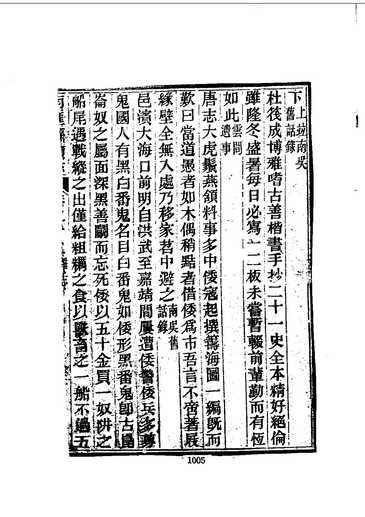 下上並南吳舊話錄
杜筱成博雅嗜古善楷書手抄二十一史全本精好絕倫
雖隆冬盛暑每日必寫一二板未嘗暫輟前輩勤而有恆
如此雲間遺事
唐志大虎鬚燕頷料事多中倭寇起撰籌海圖一編既而
歎曰當道愚者如木偶稍點者借倭為市吾言不啻著展
緣壁全無入處乃移家茗中避之南吳舊話錄
邑濱大海口前明自洪武至嘉靖間屢遭倭警倭兵多募
鬼國人有黑白番鬼名目白番鬼如倭形黑番鬼卽古崑
崙奴之屬面深黑善鬭而忘死倭以五十金買一奴阱之
船尾遇戰縱之出僅給粗糲之食以獸畜之一船不過五
1005